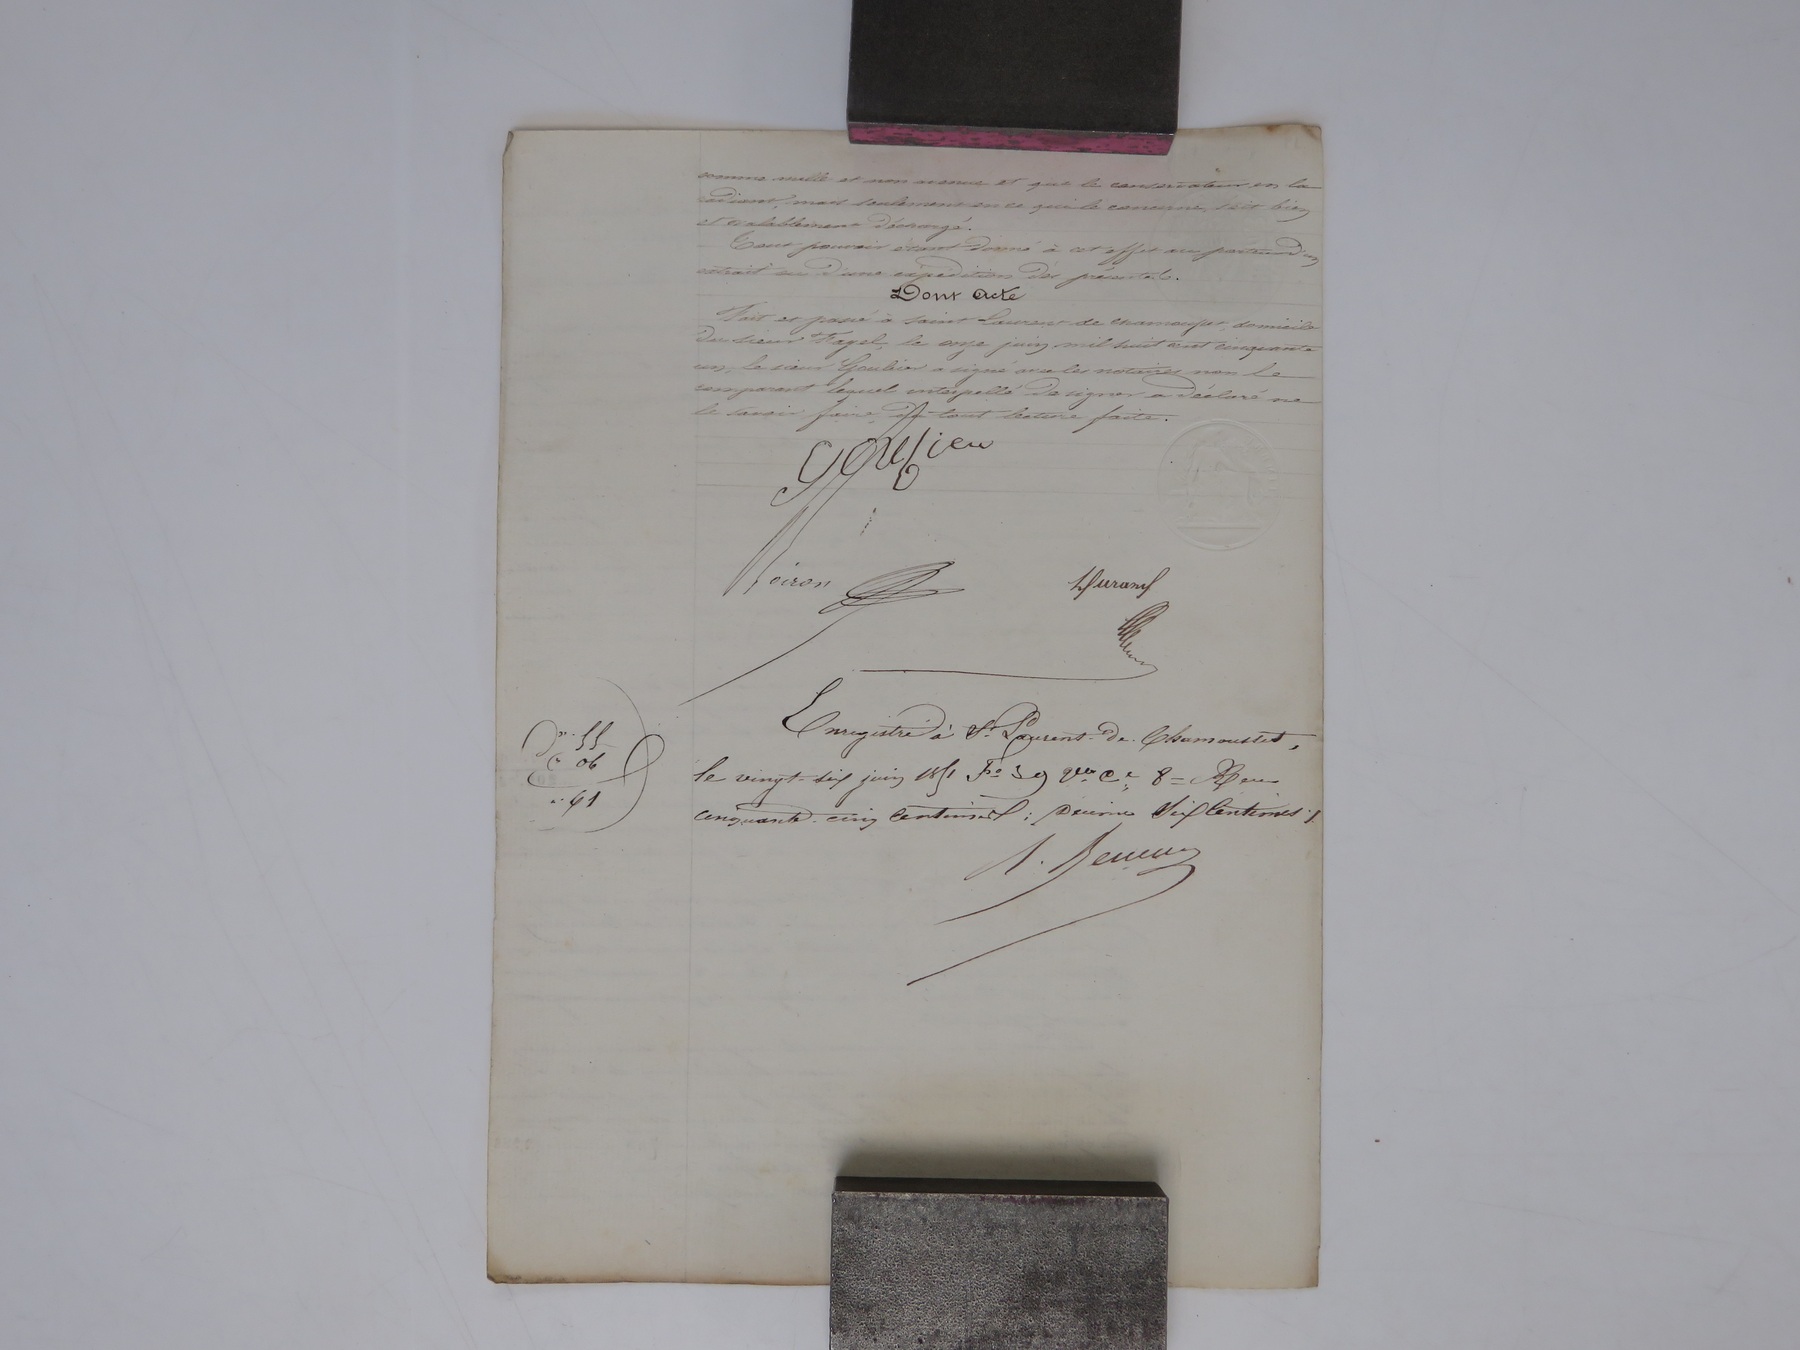 comme nulle et non avenue et que le conservateur en la
radiant, mais seulement en ce qui le concerne, soit bien
et valablement déchargé.
Tout pouvoir étant donné à cet effet au porteur d'un
extrait ou d'une expédition des présentes.
Dont acte
Fait et passé à Saint Laurent de Chamousset, domicile
du sieur le onze juin mil huit cent cinquante
un, le sieur a signé avec les notaires non le
comparant lequel interpellé de signer a déclaré ne
le savoir faire, de tout lecture faite.
oiron
Durand
Enregistré à St Laurent de Chamousset,
le vingt juin 1851 Fo 39 Vo Ce 8 = Reçu
cinquante cinq centimes ; décime six centimes
55
06
61